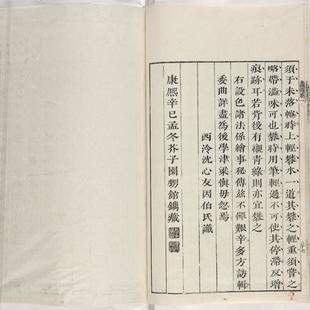 須于未落幀時上輕礬水一道其礬之輕重須嘗之
略帶澁味可也礬時用筆輕過不可使其停滯反增
痕跡耳若背後有襯青綠則亦宜礬之
右設色諸法係繪事秘傳茲不憚艱辛多方訪輯
委曲詳盡為後學津梁慎毋忽焉
西泠沈心友因伯氏識
康熙辛巳孟冬芥子園甥館鐫藏